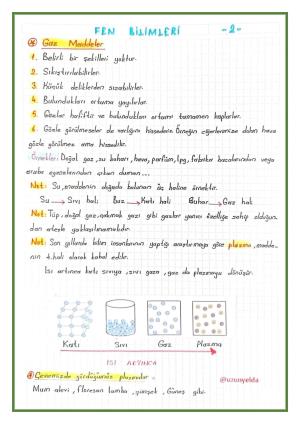 FEN BİLİMLERİ -2-
Gaz Maddeler
1. Belirli bir şekilleri yoktur.
2. Sıkıştırılabilirler.
3. Küçük deliklerden sızabilirler.
4. Bulundukları ortama yayılırlar.
5. Gazlar hafiftir ve bulundukları ortamı tamamen kaplarlar.
6. Gözle görülmeseler de varlığını hissederiz. Örneğin ciğerlerimize dolan hava
gözle görülmez ama hissedilir.
Örnekler: Doğal gaz, su buharı, hava, parfüm, lpg, fabrika bacalarından veya
araba egzozlarından çıkan duman...
Not: Su, maddenin doğada bulunan üç haline örnektir.
Su → Sıvı hali Buz → Katı hali Buhar → Gaz hali
Not: Tüp, doğal gaz, çakmak gazı gibi gazlar yanıcı özelliğe sahip olduğun-
dan ateşle yaklaştırılmamalıdır.
Not: Son yıllarda bilim insanlarının yaptığı araştırmaya göre plazma, madde-
nin 4. hali olarak kabul edilir.
Isı artınca katı sıvıya, sıvı gaza, gaz da plazmaya dönüşür.
Katı Sıvı Gaz Plazma
ISI ARTINCA
Çevremizde gördüğümüz plazmalar
@uzunyelda
Mum alevi, floresan lamba, şimşek, Güneş gibi.